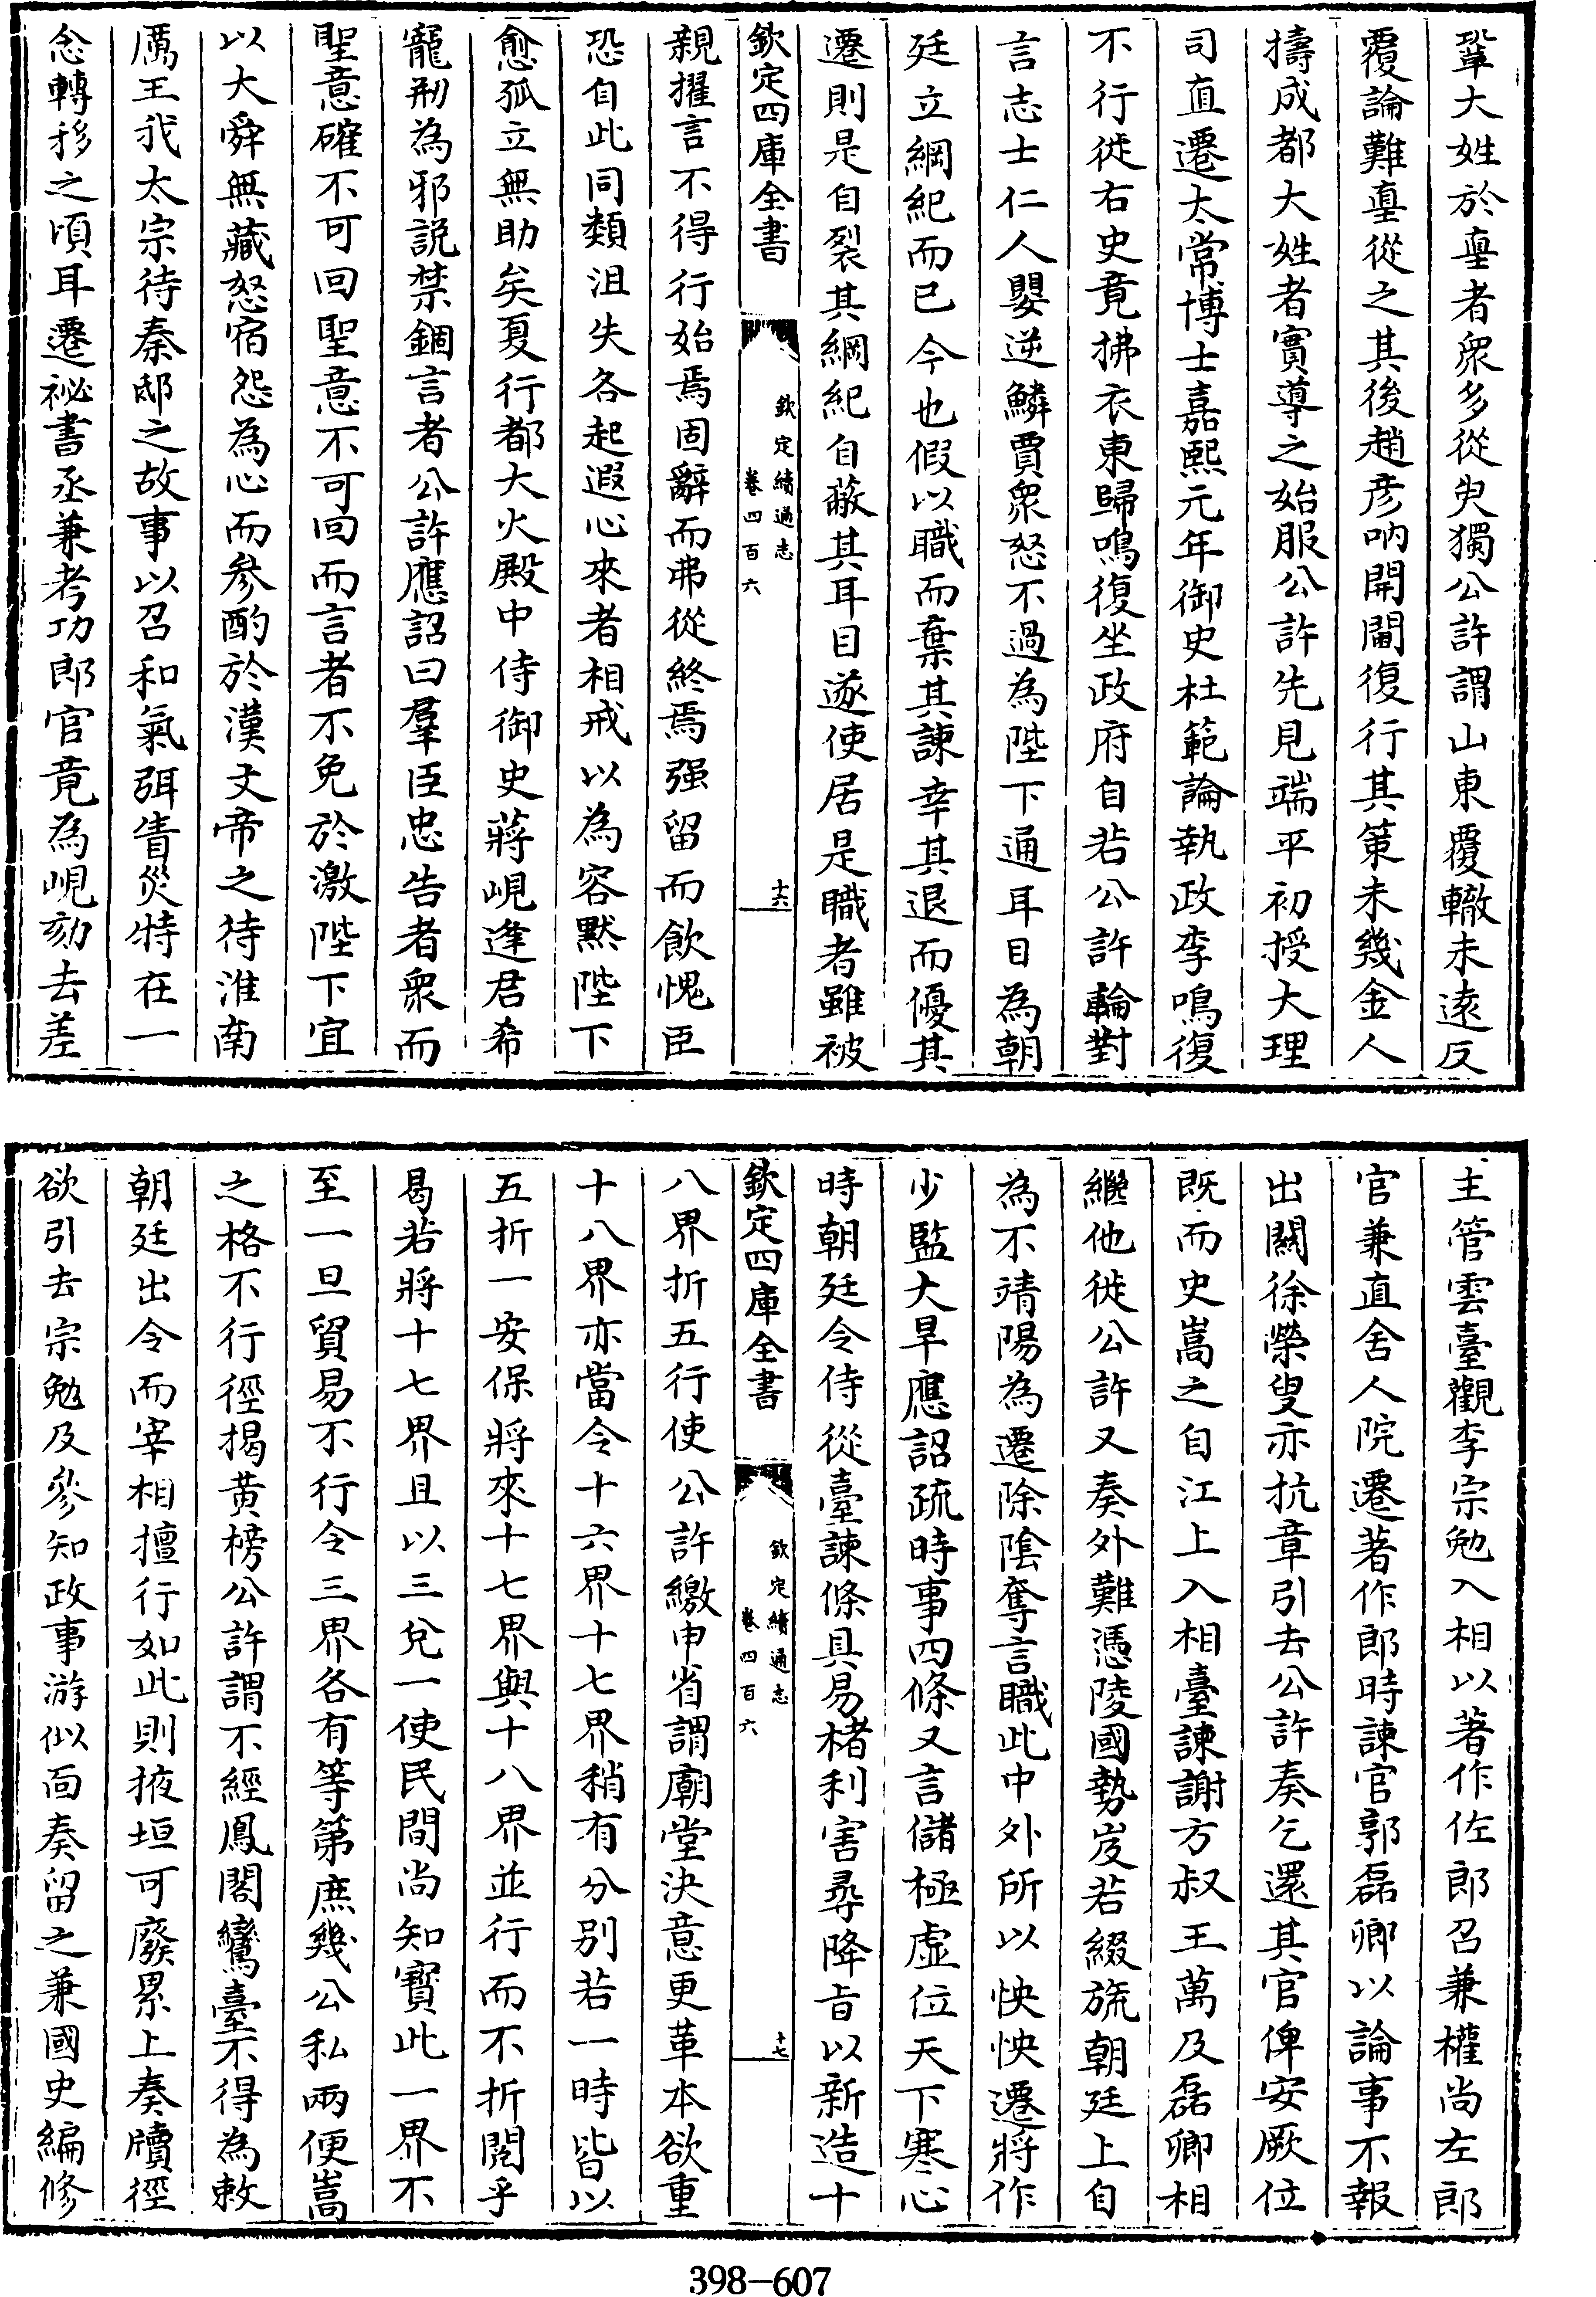 鞏大姓於臺者衆多從臾獨公許謂山東覆轍未逺反
覆論難臺從之其後趙彦吶開閫復行其策未幾金人
擣成都大姓者實導之始服公許先見端平初授大理
司直遷太常博士嘉熙元年御史杜範論執政李鳴復
不行徙右史竟拂衣東歸鳴復坐政府自若公許輪對
言志士仁人嬰逆鱗賈衆怒不過為陛下通耳目為朝
廷立綱紀而已今也假以職而棄其諫幸其退而優其
遷則是自裂其綱紀自蔽其耳目遂使居是職者雖被
欽定四庫全書
欽定續通志
卷四百六
十六
親擢言不得行始焉固辭而弗從終焉强留而飲愧臣
恐自此同類沮失各起遐心來者相戒以為容默陛下
愈孤立無助矣夏行都大火殿中侍御史蔣峴逢君希
寵刱為邪説禁錮言者公許應詔曰羣臣忠告者衆而
聖意確不可回聖意不可回而言者不免於激陛下宜
以大舜無藏怒宿怨為心而參酌於漢文帝之待淮南
厲王我太宗待秦邸之故事以召和氣弭眚災特在一
念轉移之頃耳遷祕書丞兼考功郎官竟為峴劾去差
主管雲臺觀李宗勉入相以著作佐郎召兼權尚左郎
官兼直舍人院遷著作郎時諫官郭磊卿以論事不報
出關徐榮叟亦抗章引去公許奏乞還其官俾安厥位
既而史嵩之自江上入相臺諫謝方叔王萬及磊卿相
繼他徙公許又奏外難憑陵國勢岌若綴旒朝廷上自
為不靖陽為遷除陰奪言職此中外所以怏怏遷將作
少監大旱應詔疏時事四條又言儲極虚位天下寒心
時朝廷令侍從臺諫條具易楮利害尋降旨以新造十
欽定四庫全書
欽定續通志
卷四百六
十七
八界折五行使公許繳申省謂廟堂決意更革本欲重
十八界亦當令十六界十七界稍有分别若一時皆以
五折一安保將來十七界與十八界並行而不折閲乎
曷若將十七界且以三兌一使民間尚知寳此一界不
至一旦貿易不行令三界各有等第庶幾公私兩便嵩
之格不行徑揭黄榜公許謂不經鳳閣鸞臺不得為敕
朝廷出令而宰相擅行如此則掖垣可廢累上奏牘徑
欲引去宗勉及參知政事游似面奏留之兼國史編修
398-607